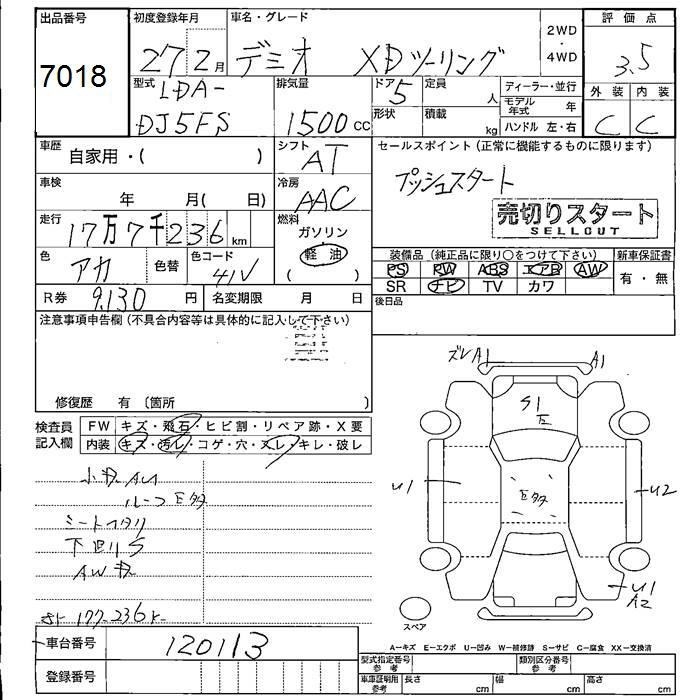 出品番号 初度登録年月 車名・グレード 2WD・4WD 評価点
7018 27 2月 デミオ XDツーリング 3.5
型式 排気量 ドア 定員 人 ディーラー・並行 外装 内装
LDA- 5 モデル年式 年 C C
DJ5FS 1500cc 形状 積載 kg ハンドル 左・右
車歴 自家用・( ) シフト AT セールスポイント(正常に機能するものに限ります)
車検 年 月( 日) 冷房 AAC プッシュスタート
走行 17万7千236km 燃料 ガソリン 軽油 ( ) 売切りスタート
SELLOUT
色 アカ 色替 色コード 41V 装備品(純正品に限り○をつけて下さい) 新車保証書
PS PW ABS エアB AW 有・無
SR ナビ TV カワ
R券 9,130円 名変期限 月 日 後日品
注意事項申告欄(不具合内容等は具体的に記入して下さい)
修復歴 有 〔箇所 〕
ズレA1 A1
S1
検査員記入欄 FW キズ・飛石・ヒビ割・リペア跡・X要
内装 キズ・汚レ・コゲ・穴・スレ・キレ・破レ
U1 U2
U1
A2
ルーフ
下回りS
AW
177.236K
スペア
車台番号 120113
A−キズ E−エクボ U−凹み W−補修跡 S−サビ C−腐食 XX−交換済
登録番号
型式指定番号 参考 類別区分番号 参考
車庫証明用 参考 長さ cm 幅 cm 高さ cm